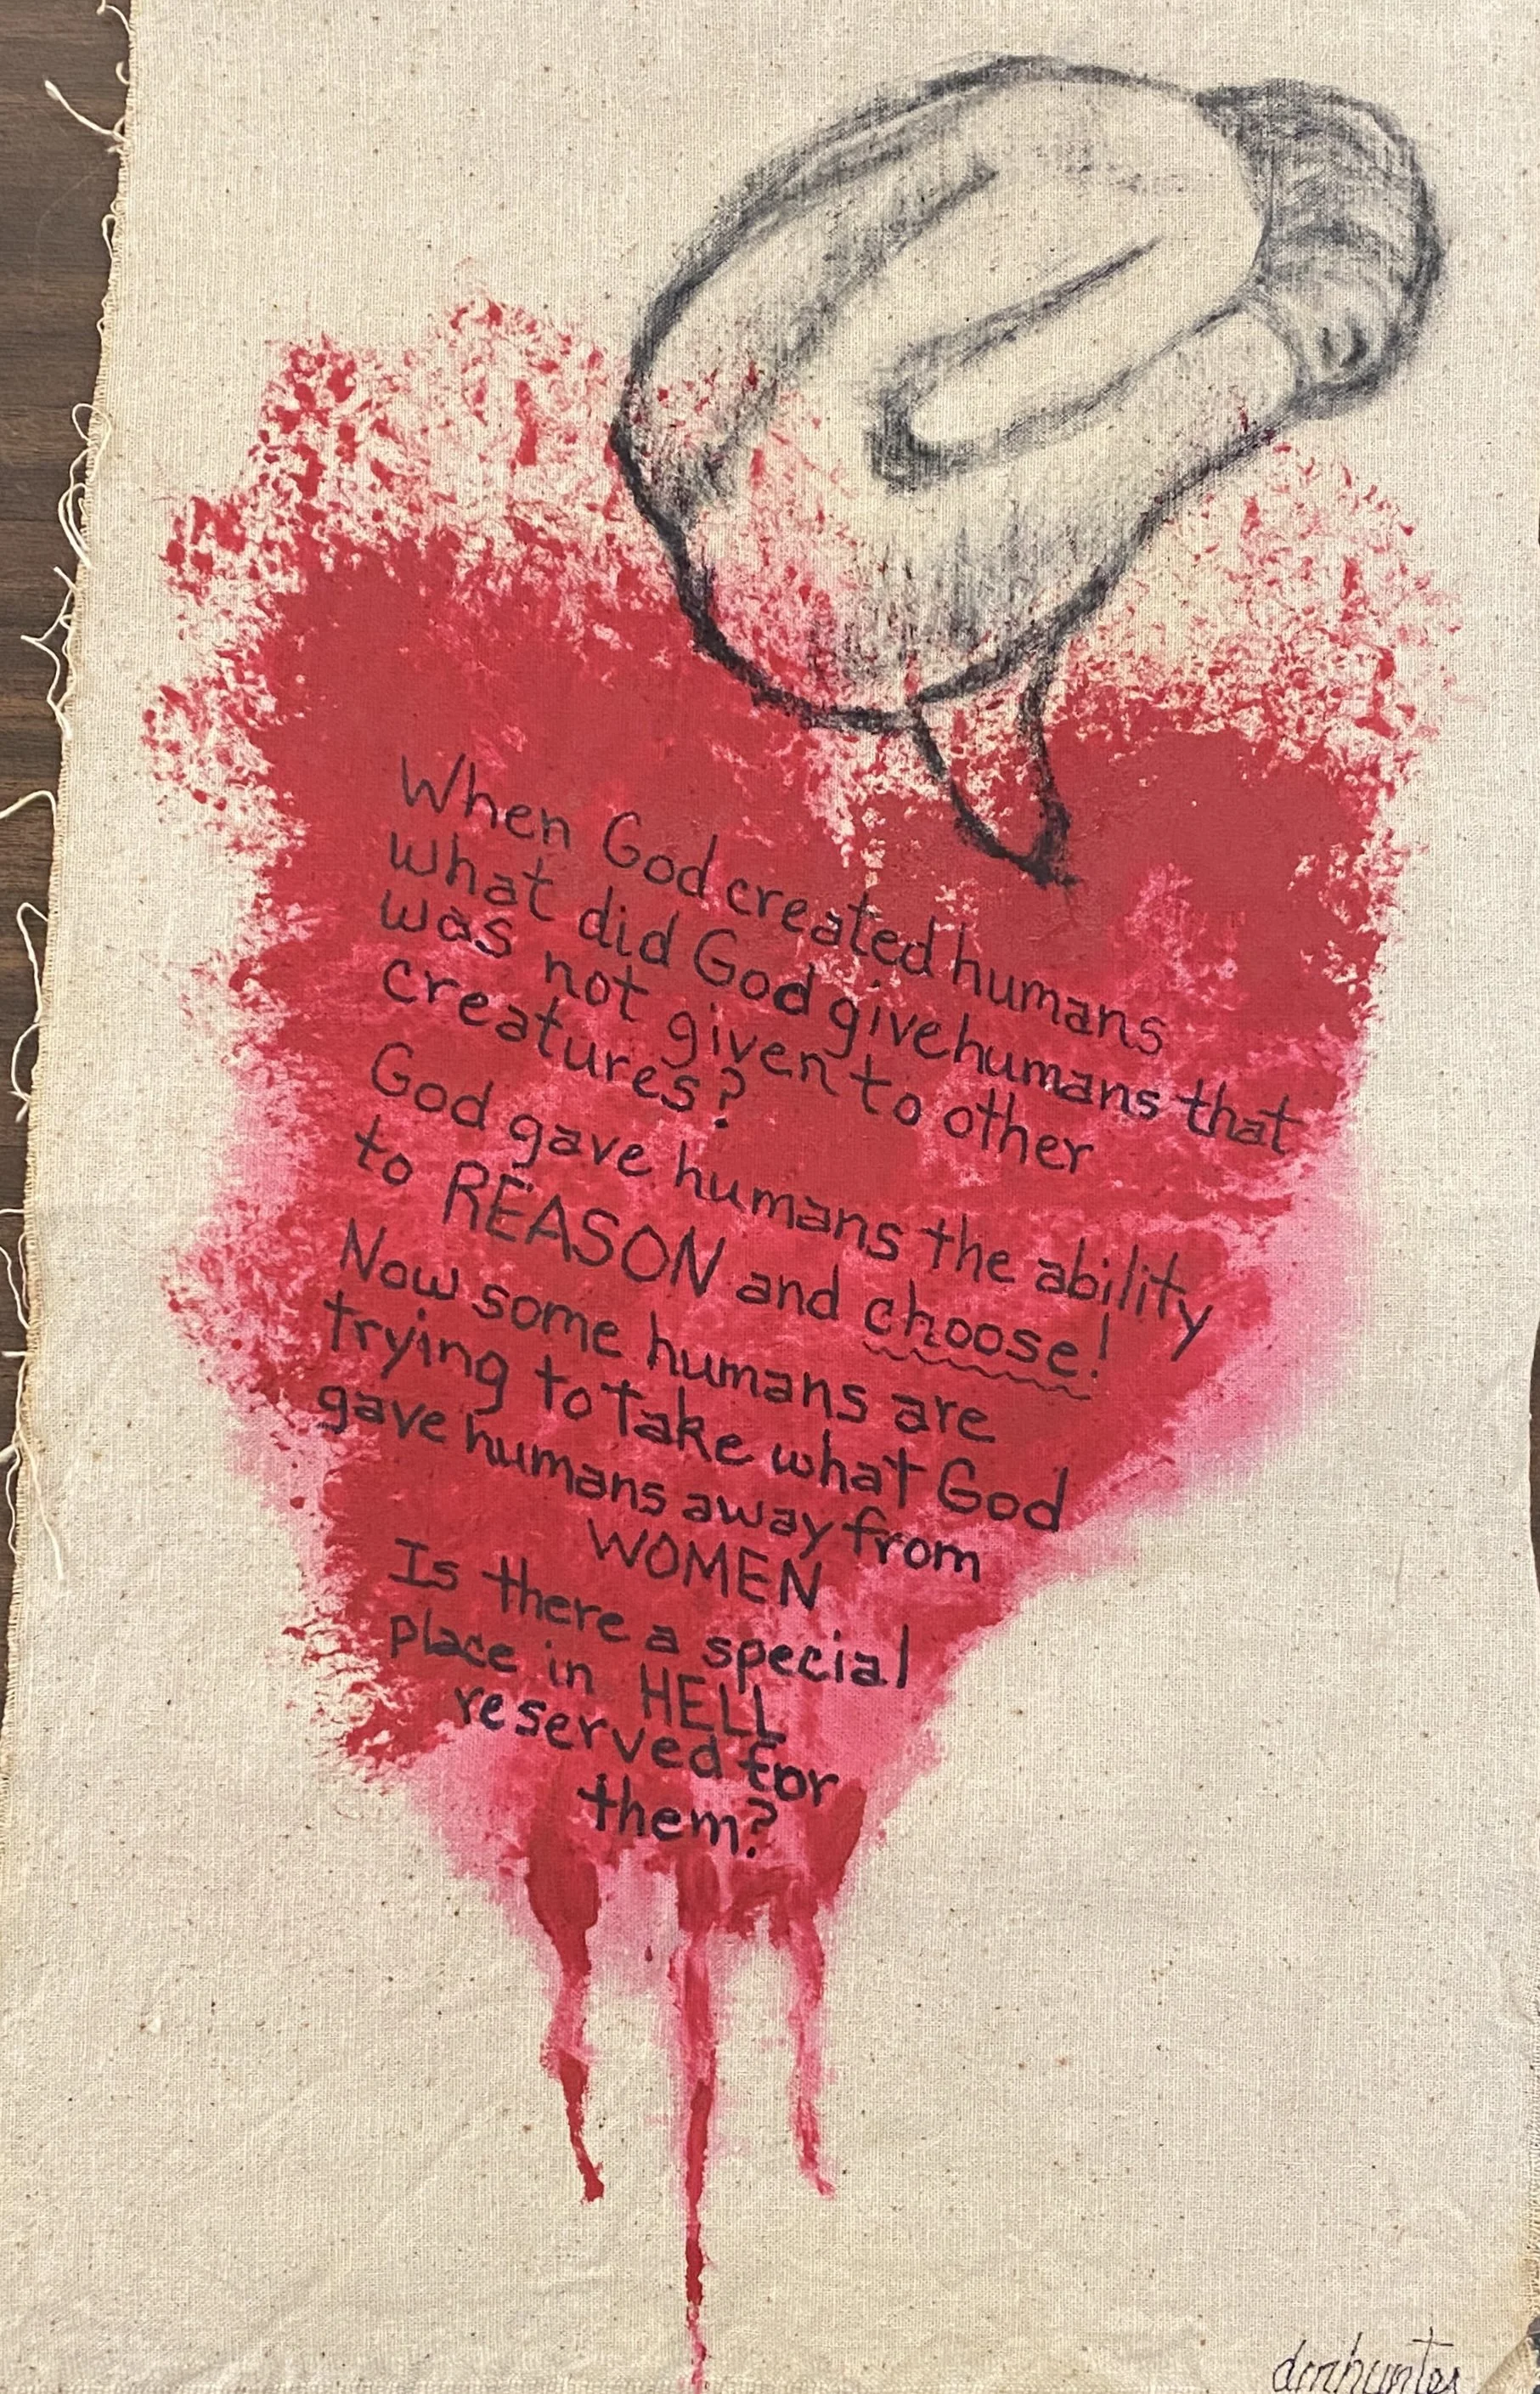 When God created humans
what did God give humans that
was not given to other
creatures?
God gave humans the ability
to REASON and choose!
Now some humans are
trying to take what God
gave humans away from
WOMEN
Is there a special
place in HELL
reserved for
them?
dmhunter